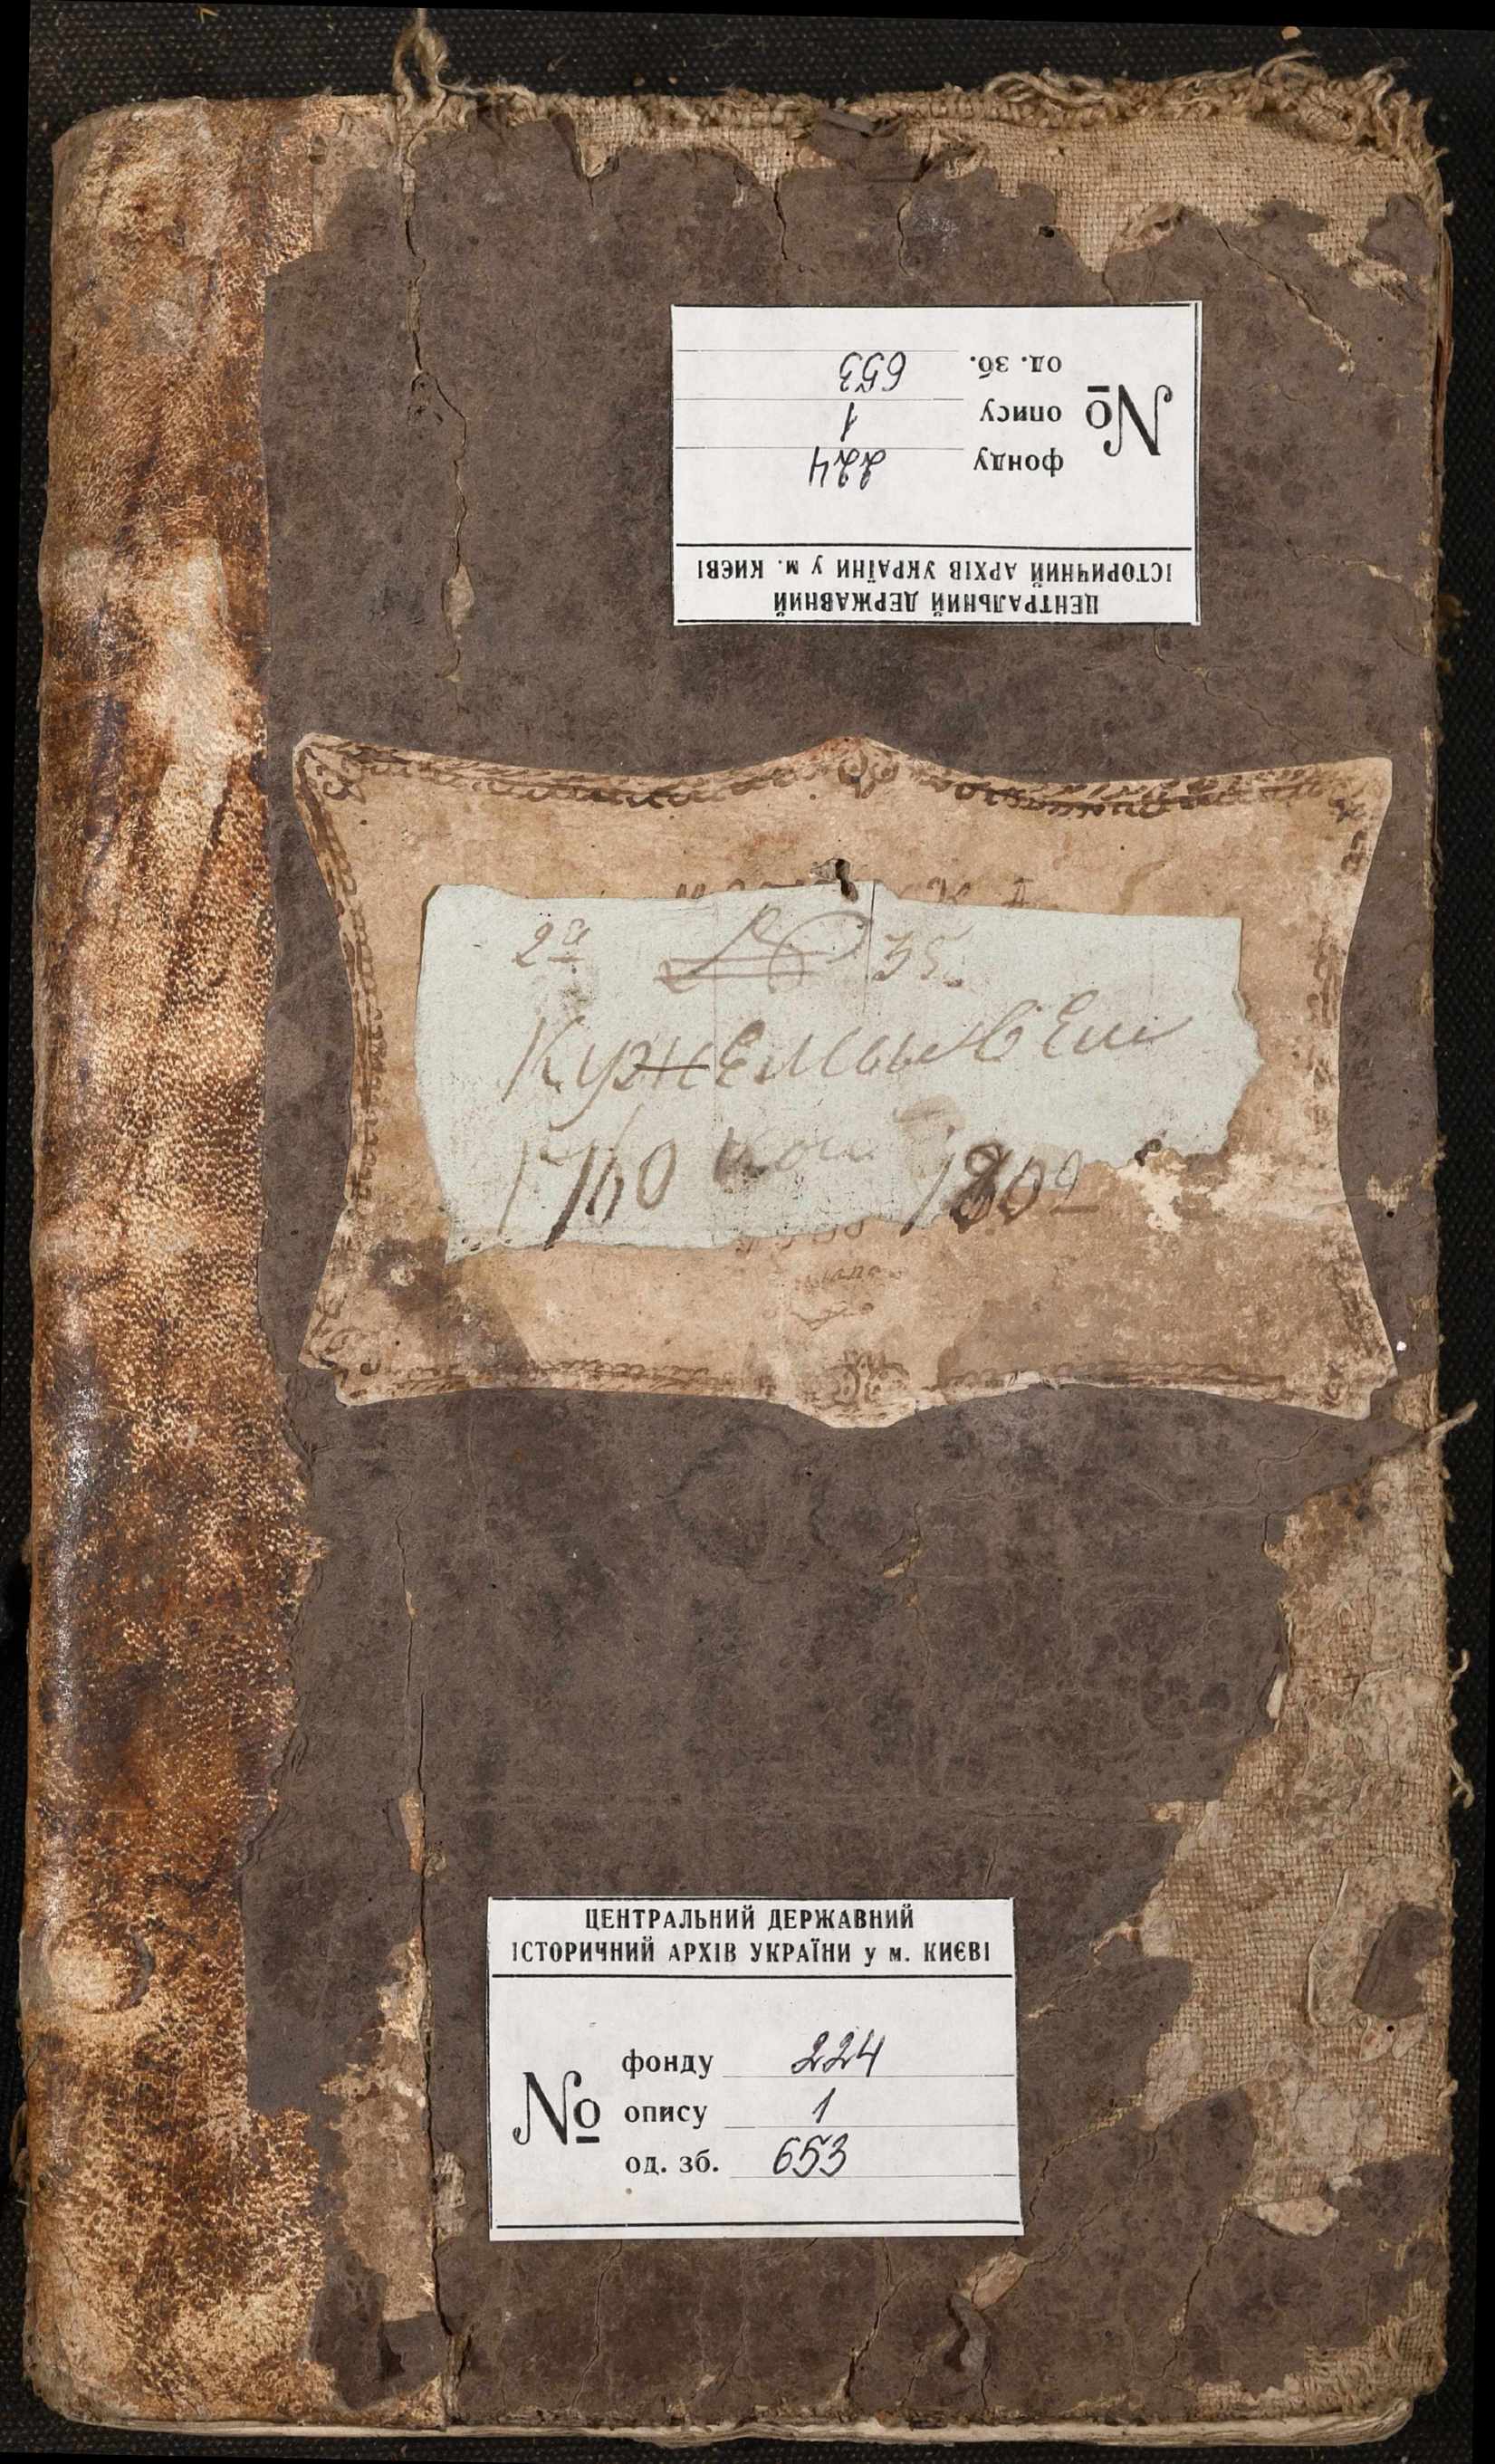 ЦЕНТРАЛЬНИЙ ДЕРЖАВНИЙ
ІСТОРИЧНИЙ АРХІВ УКРАЇНИ у м. КИЄВІ
№
фонду 224
опису 1
од. зб. 653
2я № 35.
1760 1800
ЦЕНТРАЛЬНИЙ ДЕРЖАВНИЙ
ІСТОРИЧНИЙ АРХІВ УКРАЇНИ у м. КИЄВІ
№
фонду 224
опису 1
од. зб. 653